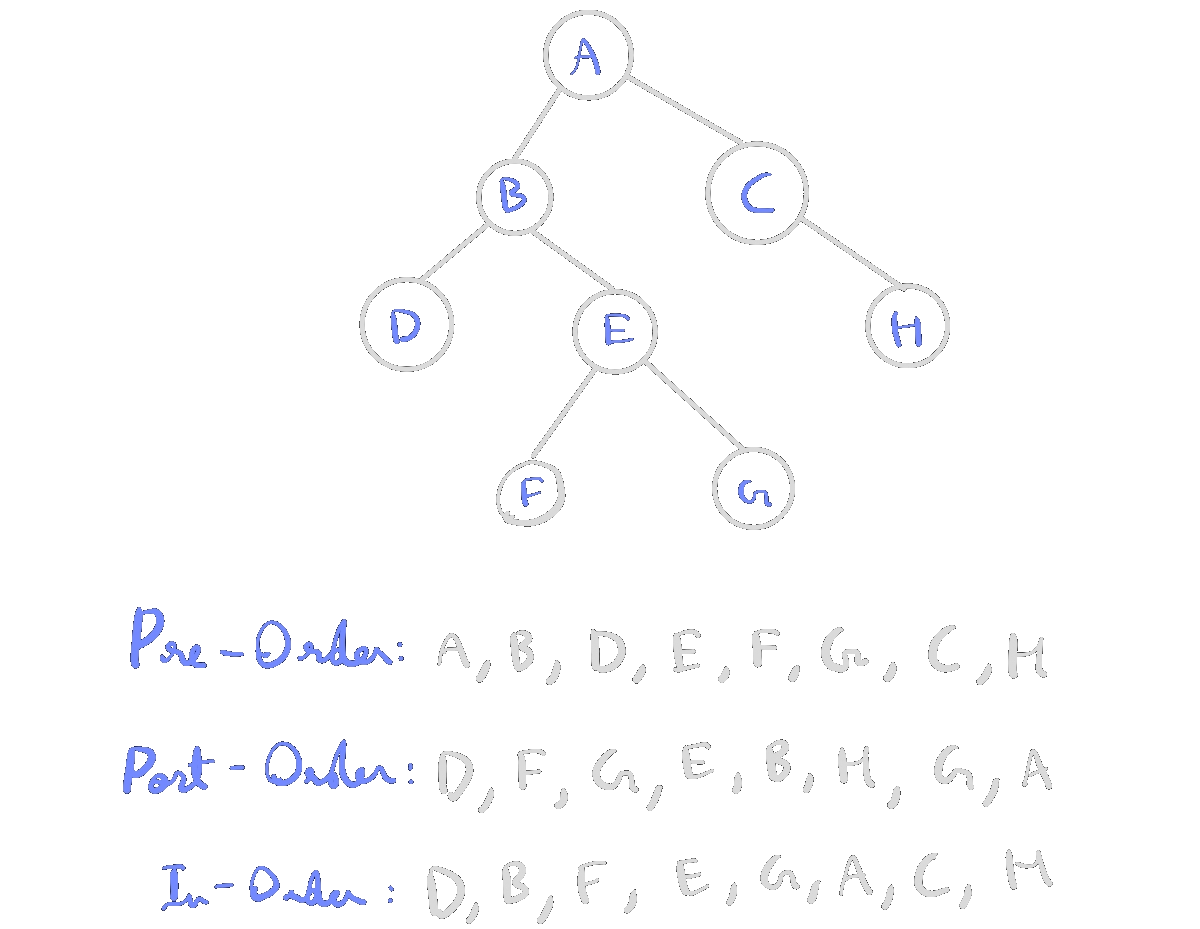 A
B C
D E H
F G
Pre-Order: A, B, D, E, F, G, C, H
Post-Order: D, F, G, E, B, H, G, A
In-Order: D, B, F, E, G, A, C, H